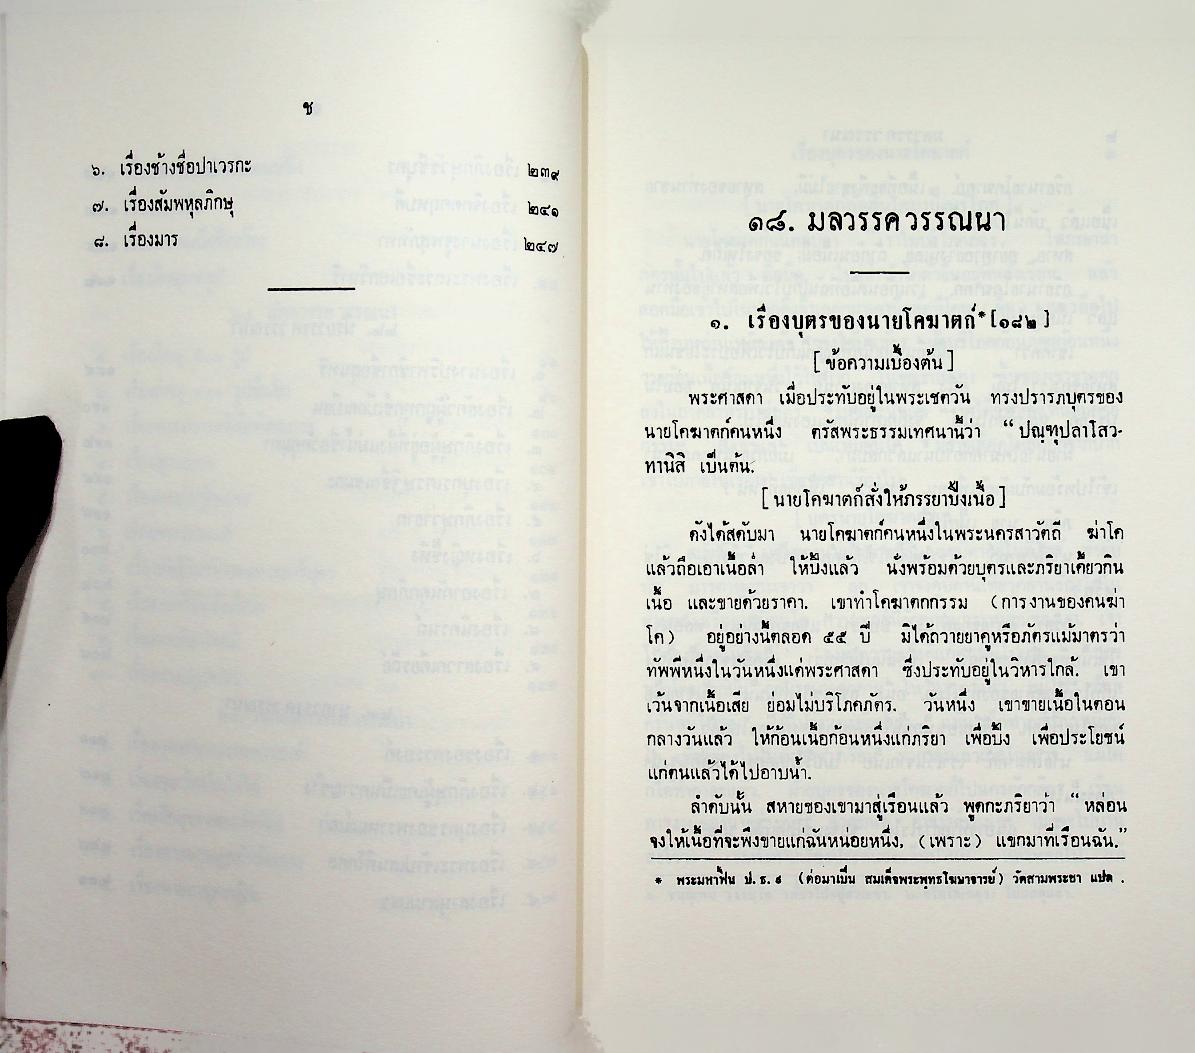 ช
๖. เรื่องช้างชื่อปาเวรกะ ๒๓๙
๗. เรื่องสัมพหุลภิกษุ ๒๔๑
๘. เรื่องมาร ๒๔๗
๑๘. มลวรรควรรณนา
๑. เรื่องบุตรของนายโคฆาตก์* [๑๘๒]
[ข้อความเบื้องต้น]
พระศาสดา เมื่อประทับอยู่ในพระเชตวัน ทรงปรารภบุตรของ
นายโคฆาตก์คนหนึ่ง ตรัสพระธรรมเทศนานี้ว่า “ปณฺฑุปลาโสว-
ทานิสิ เป็นต้น.
[นายโคฆาตก์สั่งให้ภรรยาปิ้งเนื้อ]
ดังได้สดับมา นายโคฆาตก์คนหนึ่งในพระนครสาวัตถี ฆ่าโค
แล้วถือเอาเนื้อล่ำ ให้ปิ้งแล้ว นั่งพร้อมด้วยบุตรและภริยาเคี้ยวกิน
เนื้อ และขายด้วยราคา. เขาทำโคฆาตกกรรม (การงานของคนฆ่า
โค) อยู่อย่างนี้ตลอด ๕๕ ปี มิได้ถวายยาคูหรือภัตรแม้มาตรว่า
ทัพพีหนึ่งในวันหนึ่งแด่พระศาสดา ซึ่งประทับอยู่ในวิหารใกล้. เขา
เว้นจากเนื้อเสีย ย่อมไม่บริโภคภัตร. วันหนึ่ง เขาขายเนื้อในตอน
กลางวันแล้ว ให้ก้อนเนื้อก้อนหนึ่งแก่ภริยา เพื่อปิ้ง เพื่อประโยชน์
แก่ตนแล้วได้ไปอาบน้ำ.
ลำดับนั้น สหายของเขามาสู่เรือนแล้ว พูดกะภริยาว่า “หล่อน
จงให้เนื้อที่จะพึงขายแก่ฉันหน่อยหนึ่ง, (เพราะ) แขกมาที่เรือนฉัน.”
* พระมหาฟื้น ป.ธ.๙ (ต่อมาเป็น สมเด็จพระพุทธโฆษาจารย์) วัดสามพระยา แปล .